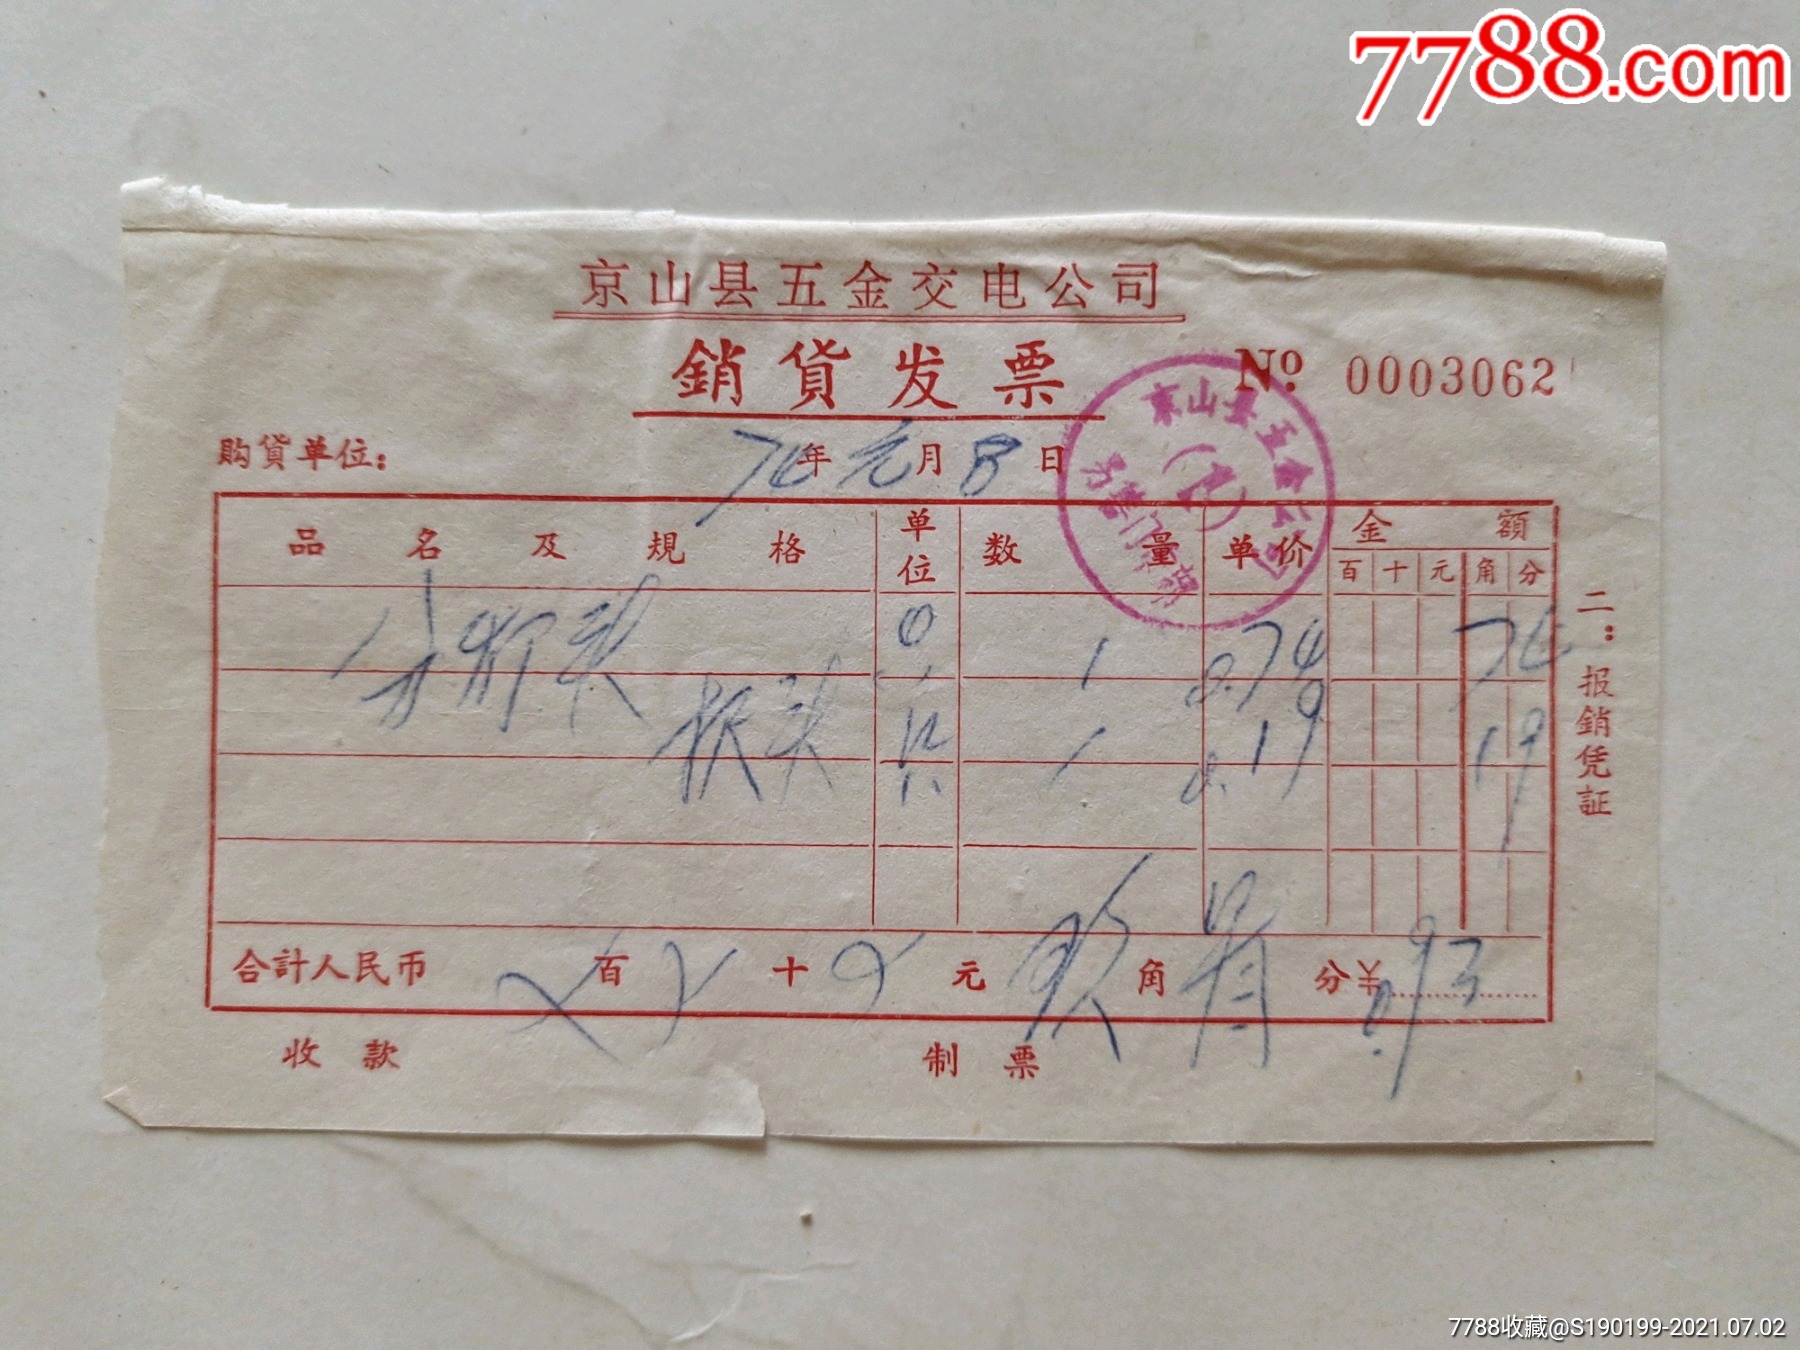 7788.com
京山县五金交电公司
銷貨发票
№ 0003062
购貨单位: 74年元月8日
京山县五金公司
(2)
品名及規格 单位 数量 单价 金額
百 十 元 角 分
1 0.74 74
1 0.19 19
合計人民币 百 十 元 玖角 分¥0.93
收款 制票
二:报銷凭証
7788收藏@S190199-2021.07.02